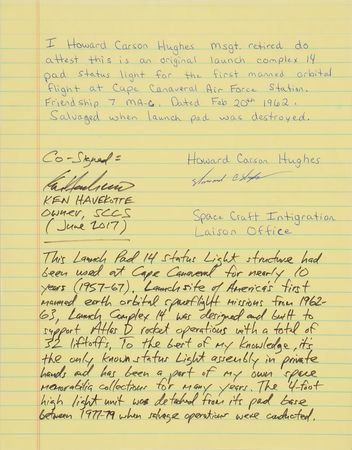 I Howard Carson Hughes msgt. retired do
attest this is an original launch complex 14
pad status light for the first manned orbital
flight at Cape Canaveral Air Force Station.
Friendship 7 MA-6. Dated Feb 20th 1962.
Salvaged when launch pad was destroyed.
Co-Signed =
Howard Carson Hughes
KEN HAVEKOTTE
OWNER, SCCS
(June 2017)
Space Craft Intigration
Laison Office
This Launch Pad 14 Status Light structure had
been used at Cape Canaveral for nearly 10
years (1957-67). Launch site of America's first
manned earth orbital spaceflight missions from 1962-
63, Launch Complex 14 was designed and built to
support Atlas D rocket operations with a total of
32 liftoffs. To the best of my knowledge, it's
the only known status light assembly in private
hands and has been a part of my own space
memorabilia collection for many years. The 4-foot
high light unit was detached from its pad base
between 1977-79 when salvage operations were conducted.